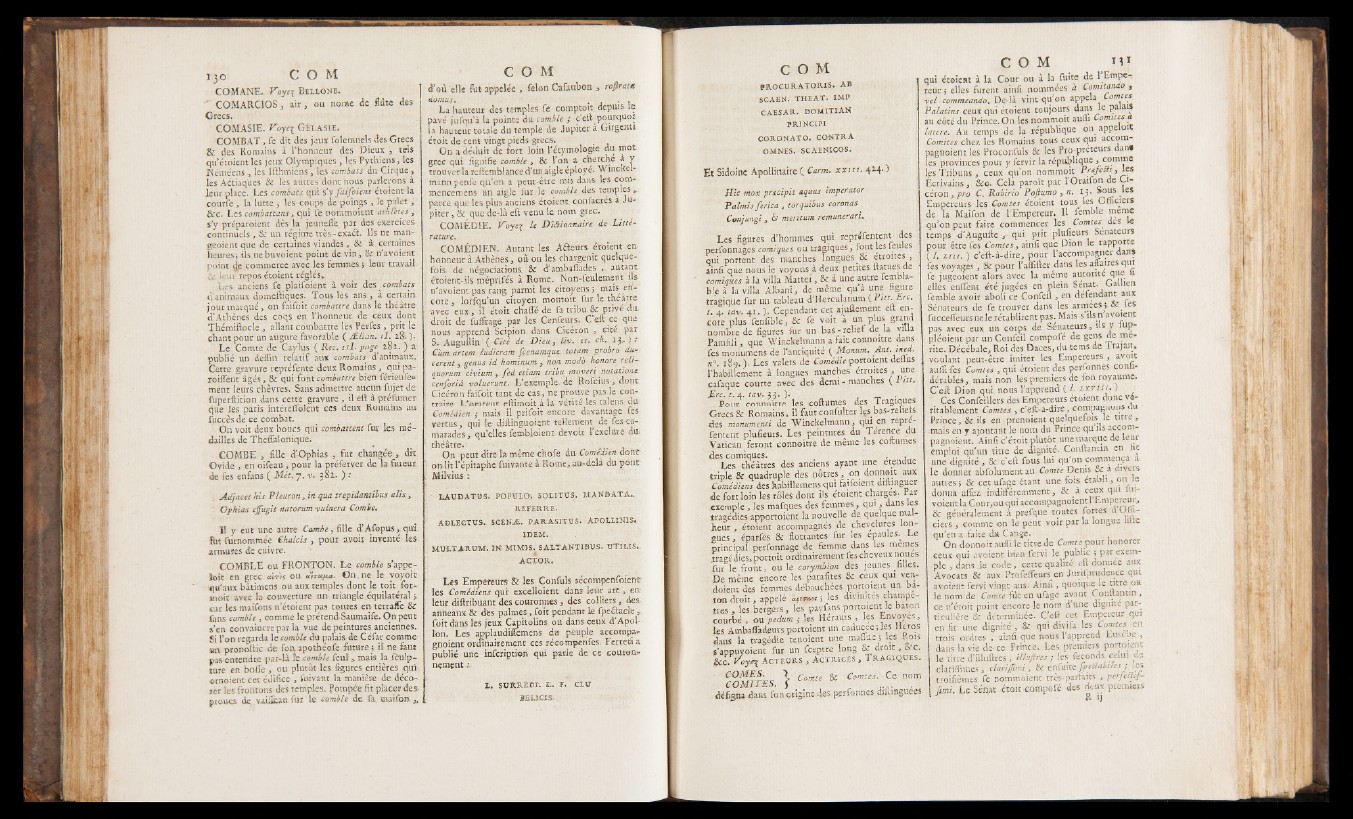 130 C O M
COMANE. Voyez BELLONE.
COMARCIOS, air, ou nome de flûte des
Grecs.
COMASIE. Voyez GÉLASIE.
COMBAT, se dit des jeux solemnels des Grecs
& des Romains à l'honneur des Dieux, tels
qu'étoient les jeux Olympiques, les Pythiens, les
Néméens, les Isthmiens, les combats du Cirque,
les Actiaques & les autres dont nous parlerons à
leur place. Les combats qui s'y faisoient étoient la
course, la lutte, les coups de poings, le palet,
&c. Les combattans, qui se nommoient athlètes,
s'y préparoient dès la jeunesse par des exercices
continuels, & un régime très-exact. Ils ne man-
geoient que de certaines viandes, & à certaines
heures; ils ne buvoient point de vin, & n'avoient
point de commerce avec les femmes; leur travail
& leur repos étoient réglés.
Les anciens se plaisoient à voir des combats
d'animaux domestiques. Tous les ans, à certain
jour marqué, on faisoit combattre dans le théâtre
d'Athènes des coqs en l'honneur de ceux dont
Thémistocle, allant combattre les Perses, prit le
chant pour un augure favorable (Ælian. II. 28.).
Le Comte de Caylus (Rec. III. page 282.) a
publié un dessin relatif aux combats d'animaux.
Cette gravure représente deux Romains, qui pa-
roissent âgés, & qui font combattre bien sérieuse-
ment leurs chèvres. Sans admettre aucun sujet de
superstition dans cette gravure, il est à présumer
que les paris intéressoient ces deux Romains au
succès de ce combat.
On voit deux boucs qui combattent sur les mé-
dailles de Thessalonique.
COMBE, fille d'Ophias, fut changée, dit
Ovide, en oiseau, pour la préserver de la fureur
de ses enfans (Mét. 7. v. 382.):
Adjacet his Pleuron, in qua trepidantibus alis,
Ophias effugit natorum vulnera Combe.
Il y eut une autre Combe, fille d'Asopus, qui
fut surnommée Chalcis, pour avoir inventé les
armures de cuivre.
COMBLE ou FRONTON. Le comble s'appe-
loit en grec ἀετὸς ou ἀέτωμα. On ne le voyoit
qu'aux bâtimens ou aux temples dont le toit for-
moit avec la couverture un triangle équilatéral;
car les maisons n'étoient pas toutes en terrasse &
sans comble, comme le prétend Saumaise. On peut
s'en convaincre par la vue de peintures anciennes.
Si l'on regarda le comble du palais de César comme
un pronostic de son apothéose future; il ne faut
pas entendre par-là le comble seul, mais la sculp-
ture en bosse, ou plutôt les figures entières qui
ornoient cet édifice, suivant la manière de déco-
rer les frontons des temples. Pompée fit placer des
proues de vaisseau sur le comble de sa maison,
C O M
d'où elle fut appelée, selon Casaubon, rostrata
domus.
La hauteur des temples se comptoit depuis le
pavé jusqu'à la pointe du comble; c'est pourquoi
la hauteur totale du temple de Jupiter à Girgenti
étoit de cent vingt pieds grecs.
On a déduit de fort loin l'étymologie du mot
grec qui signifie comble, & l'on a cherché à y
trouver la ressemblance d'un aigle éployé. Winckel-
mann pense qu'on a peut-être mis dans les com-
mencemens un aigle sur le comble des temples,
parce que les plus anciens étoient consacrés à Ju-
piter, & que de-là est venu le nom grec.
COMÉDIE. Voyez le Dictionnaire de Litté-
rature.
COMÉDIEN. Autant les Acteurs étoient en
honneur à Athènes, où on les chargeoit quelque-
fois de négociations & d'ambassades, autant
étoient-ils méprisés à Rome. Non-seulement ils
n'avoient pas rang parmi les citoyens; mais en-
core, lorsqu'un citoyen montoit sur le théâtre
avec eux, il étoit chassé de sa tribu & privé du
droit de suffrage par les Censeurs. C'est ce que
nous apprend Scipion dans Cicéron, cité par
S. Augustin (Cité de Dieu, liv. II. ch. 13.):
Cum artem ludicram scenamque totam probro du-
cerent, genus id hominum, non modò honore reli-
quorum civium, sed etiam tribu moveri notatione
censoriâ voluerunt. L'exemple de Roscius, dont
Cicéron faisoit tant de cas, ne prouve pas le con-
traire. L'orateur estimoit à la vérité les talens du
Comédien; mais il prisoit encore davantage ses
vertus, qui le distinguoient tellement de ses ca-
marades, qu'elles sembloient devoir l'exclure du
théâtre.
On peut dire la même chose du Comédien dont
on lit l'épitaphe suivante à Rome, au-delà du pont
Milvius:
LAUDATUS. POPULO. SOLITUS. MANDATA.
REFERRE.
ADLECTUS. SCENÆ. PARASITUS. APOLLINIS.
IDEM.
MULTARUM. IN MIMOS. SALTANTIBUS. UTILIS.
ACTOR.
Les Empereurs & les Consuls récompensoient
les Comédiens qui excelloient dans leur art, en
leur distribuant des couronnes, des colliers, des
anneaux & des palmes, soit pendant le spectacle,
soit dans les jeux Capitolins ou dans ceux d'Apol-
lon. Les applaudissemens du peuple accompa-
gnoient ordinairement ces récompenses. Ferreti a
publié une inscription qui parle de ce couron-
nement:
L. SURREDI. L. F. CLU
FELICIS
C O M
PROCURATORIS. AB
SCAEN. THEAT. IMP
CAESAR. DOMITIAN
PRINCIPI
CORONATO. CONTRA
OMNES. SCAENICOS.
Et Sidoine Apollinaire (Carm. XXIII. 424.)
Hic mox præcipit æquus imperator
Palmis serica, torquibus coronas
Conjungi, & meritum remunerari.
Les figures d'hommes qui représentent des
personnages comiques ou tragiques, sont les seules
qui portent des manches longues & étroites,
ainsi que nous le voyons à deux petites statues de
comiques à la villa Mattei, & à une autre sembla-
ble à la villa Albani, de même qu'à une figure
tragique sur un tableau d'Herculanum (Pitt. Erc.
t. 4. tav. 41.). Cependant cet ajustement est en-
core plus sensible, & se voit à un plus grand
nombre de figures sur un bas-relief de la villa
Pamfili, que Winckelmann a fait connoître dans
ses monumens de l'antiquité (Monum. Ant. ined.
n°. 189.). Les valets de Comédie portoient dessus
l'habillement à longues manches étroites, une
casaque courte avec des demi-manches (Pitt.
Erc. t. 4. tav. 33.).
Pour connoître les costumes des Tragiques
Grecs & Romains, il faut consulter les bas-reliefs
des monumenti de Winckelmann, qui en repré-
sentent plusieurs. Les peintures du Térence du
Vatican feront connoître de même les costumes
des comiques.
Les théâtres des anciens ayant une étendue
triple & quadruple des nôtres, on donnoit aux
Comédiens des habillemens qui faisoient distinguer
de fort loin les rôles dont ils étoient chargés. Par
exemple, les masques des femmes, qui, dans les
tragédies apportoient la nouvelle de quelque mal-
heur, étoient accompagnés de chevelures lon-
gues, éparses & flottantes sur les épaules. Le
principal personnage de femme dans les mêmes
tragédies, portoit ordinairement ses cheveux noués
sur le front, ou le corymbion des jeunes filles.
De même encore les parasites & ceux qui ven-
doient des femmes débauchées portoient un bâ-
ton droit, appelé; les divinités champê-
tres, les bergers, les paysans portoient le bâton
courbé, ou pedum; les Héraus, les Envoyés,
les Ambassadeurs portoient un caducée; les Héros
dans la tragédie tenoient une massue; les Rois
s'appuyoient sur un sceptre long & droit, &c.
&c. Voyez ACTEURS, ACTRICES, TRAGIQUES.
COMES. }
COMITES. } Comte & Comtes. Ce nom
désigna dans son origine les personnes distinguées
C O M 131
qui étoient à la Cour ou à la suite de l'Empe-
reur; elles furent ainsi nommées à Comitando,
vel commeando. De-là vint qu'on appela Comtes
Palatins ceux qui étoient toujours dans le palais
au côté du Prince. On les nommoit aussi Comites à
latere. Au temps de la république on appeloit
Comites chez les Romains tous ceux qui accom-
pagnoient les Proconsuls & les Pro-préteurs dans
les provinces pour y servir la république, comme
les Tribuns, ceux qu'on nommoit Præfecti, les
Ecrivains, &c. Cela paroît par l'Oraison de Ci-
céron, pro C. Rabirio Postumo, n. 13. Sous les
Empereurs les Comtes étoient tous les Officiers
de la Maison de l'Empereur. Il semble même
qu'on peut faire commencer les Comtes dès le
temps d'Auguste, qui prit plusieurs Sénateurs
pour être ses Comtes, ainsi que Dion le rapporte
(l. LIII.) c'est-à-dire, pour l'accompagner dans
ses voyages, & pour l'assister dans les affaires qui
se jugeoient alors avec la même autorité que si
elles eussent été jugées en plein Sénat. Gallien
semble avoir aboli ce Conseil, en défendant aux
Sénateurs de se trouver dans les armées; & ses
successeurs ne le rétablirent pas. Mais s'ils n'avoient
pas avec eux un corps de Sénateurs, ils y sup-
pléoient par un Conseil composé de gens de mé-
rite. Décébale, Roi des Daces, du tems de Trajan,
voulant peut-être imiter les Empereurs, avoit
aussi ses Comtes, qui étoient des personnes consi-
dérables, mais non les premiers de son royaume.
C'est Dion qui nous l'apprend (l. LXVIII.)
Ces Conseillers des Empereurs étoient donc vé-
ritablement Comtes, c'est-à-dire, compagnons du
Prince, & ils en prenoient quelquefois le titre,
mais en y ajoutant le nom du Prince qu'ils accom-
pagnoient. Ainsi c'étoit plutôt une marque de leur
emploi qu'un titre de dignité. Constantin en fit
une dignité, & c'est sous lui qu'on commença à
le donner absolument au Comte Denis & à divers
autres; & cet usage étant une fois établi, on le
donna assez indifféremment, & à ceux qui sui-
voient la Cour, ou qui accompagnoient l'Empereur,
& généralement à presque toutes sortes d'Offi-
ciers, comme on le peut voir par la longue liste
qu'en a faite du Cange.
On donnoit aussi le titre de Comte pour honorer
ceux qui avoient bien servi le public; par exem-
ple, dans le code, cette qualité est donnée aux
Avocats & aux Professeurs en Jurisprudence qui
avoient servi vingt ans. Ainsi, quoique le titre ou
le nom de Comte fût en usage avant Constantin,
ce n'étoit point encore le nom d'une dignité par-
ticulière & déterminée. C'est cet Empereur qui
en fit une dignité, & qui divisa les Comtes en
trois ordres, ainsi que nous l'apprend Eusèbe,
dans la vie de ce Prince. Les premiers portoient
le titre d'illustres, illustres; les seconds celui de
clarissimes, clarissimi, & ensuite spectabiles; les
troisièmes se nommoient très-parfaits, perfectis-
simi. Le Sénat étoit composé des deux premiers
R ij